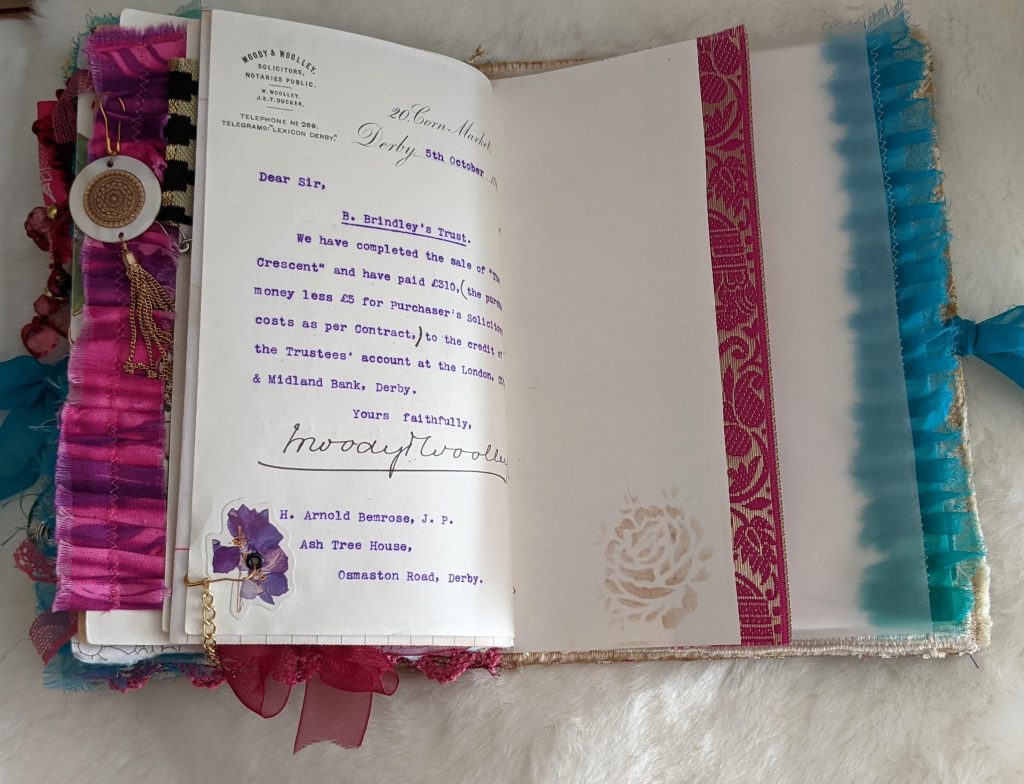 MOODY & WOOLLEY,
SOLICITORS,
NOTARIES PUBLIC.
W. WOOLLEY.
J.E.T. DUCKER.
TELEPHONE Nº 269.
TELEGRAMS: "LEXICON DERBY."
20, Corn Market,
Derby 5th October
Dear Sir,
B. Brindley's Trust.
We have completed the sale of "The
Crescent" and have paid £310, (the purch
money less £5 for Purchaser's Solicitor
costs as per Contract,) to the credit of
the Trustees' account at the London,
& Midland Bank, Derby.
Yours faithfully,
Moody & Woolley
H. Arnold Bemrose, J. P.
Ash Tree House,
Osmaston Road, Derby.